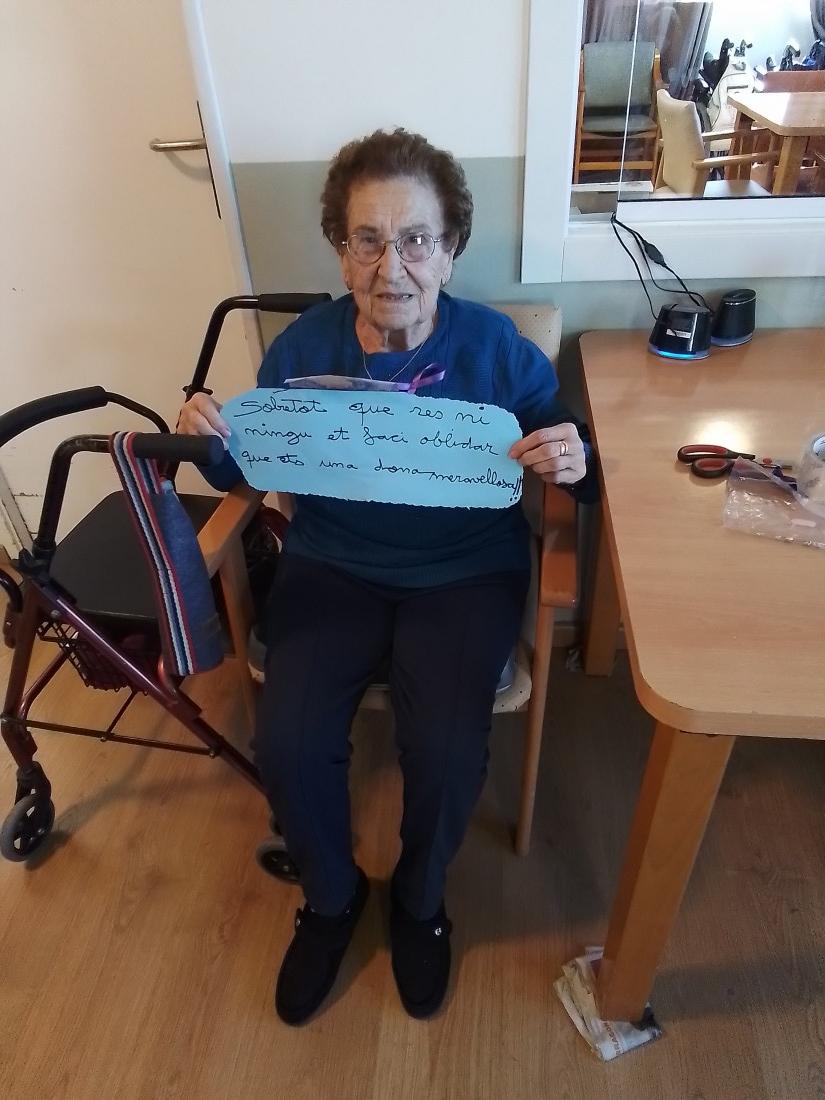 Sobretot que res ni
ningu et faci oblidar
que ets una dona meravellosa!!!